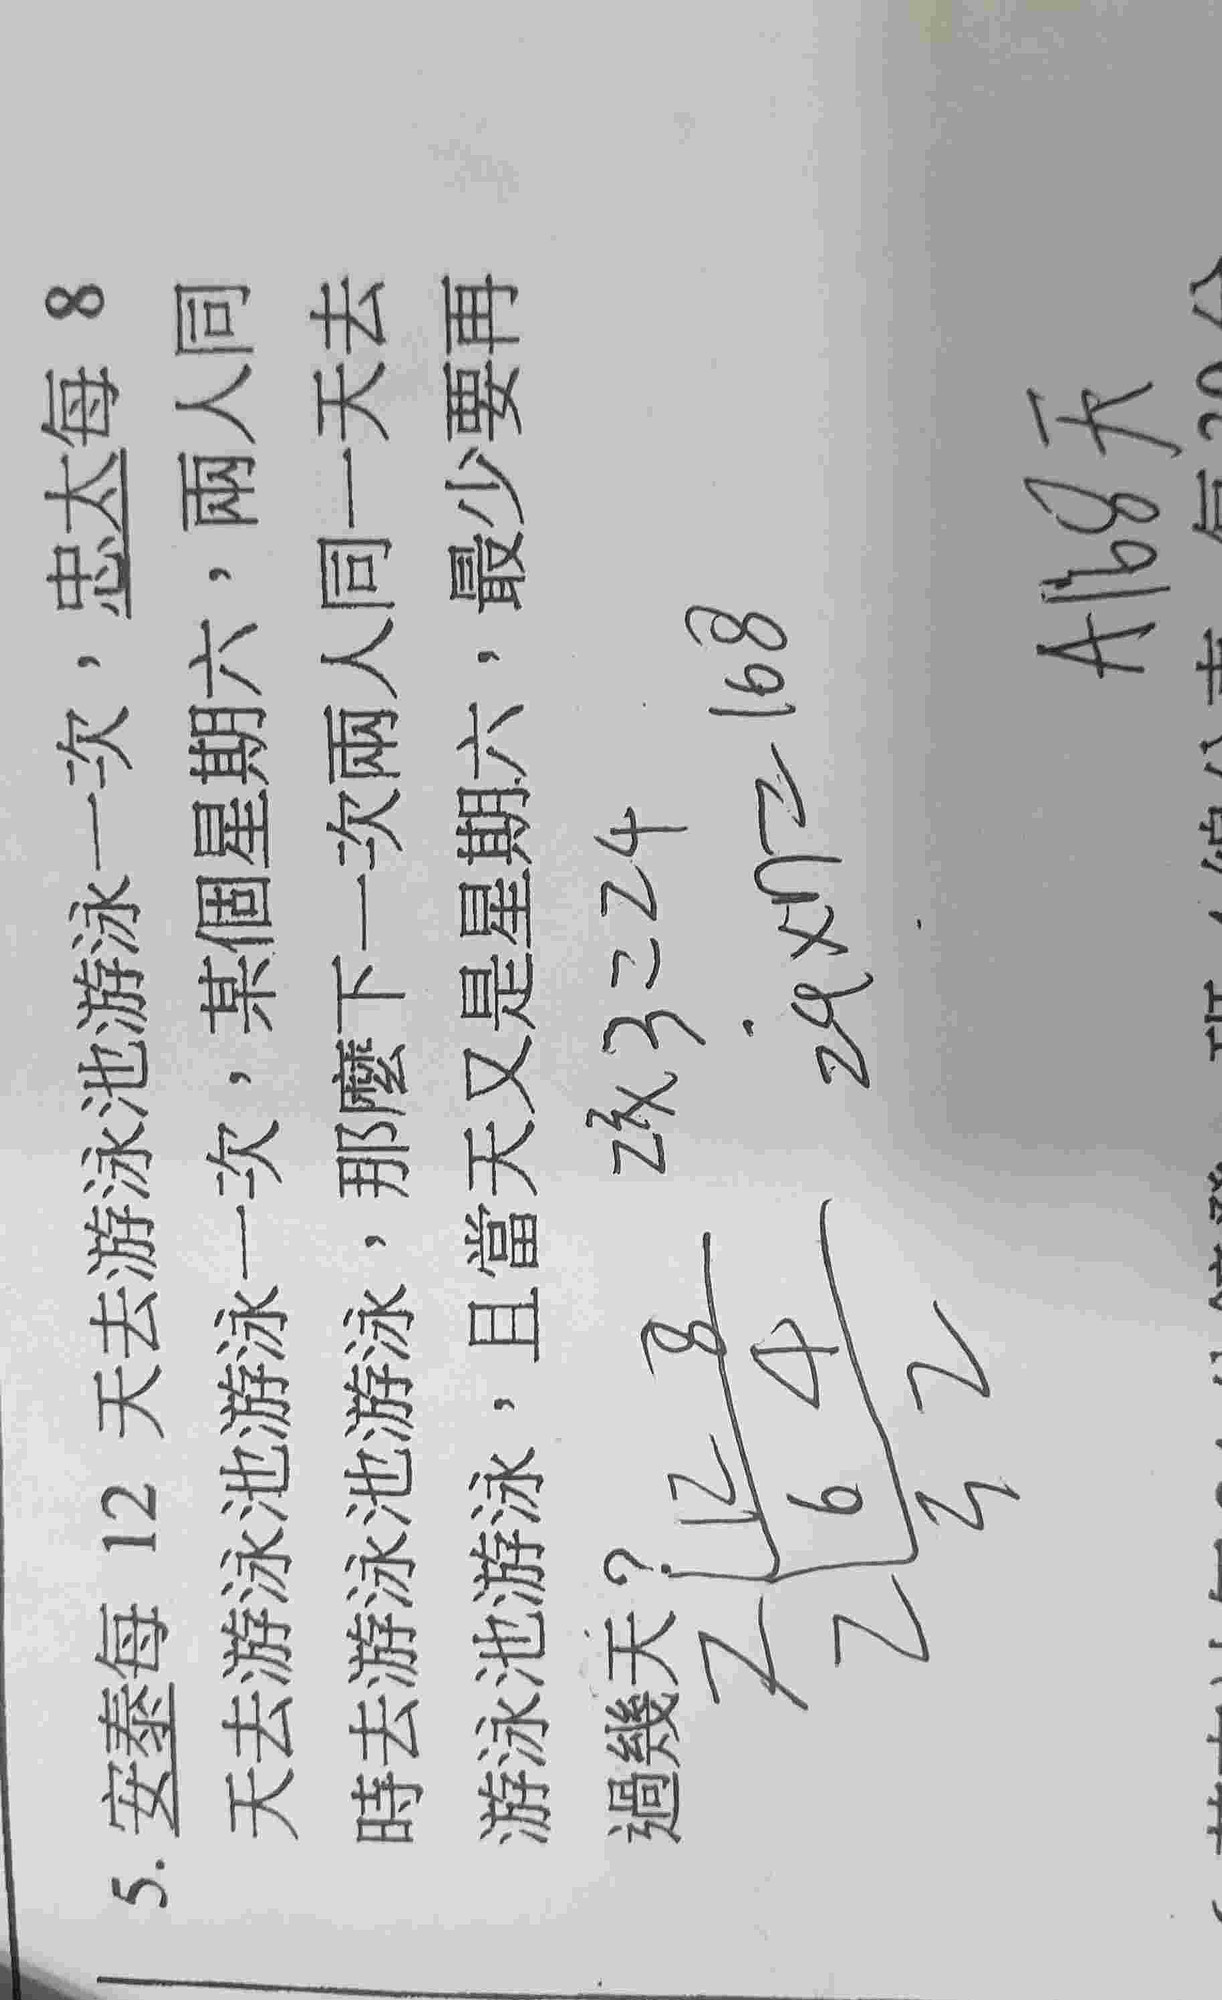 5. 安泰每 12 天去游泳池游泳一次，忠太每 8
天去游泳池游泳一次，某個星期六，兩人同
時去游泳池游泳，那麼下一次兩人同一天去
游泳池游泳，且當天又是星期六，最少要再
過幾天？
2 12 8
2 6 4
3 2
2³×3=24
24×7=168
A168天